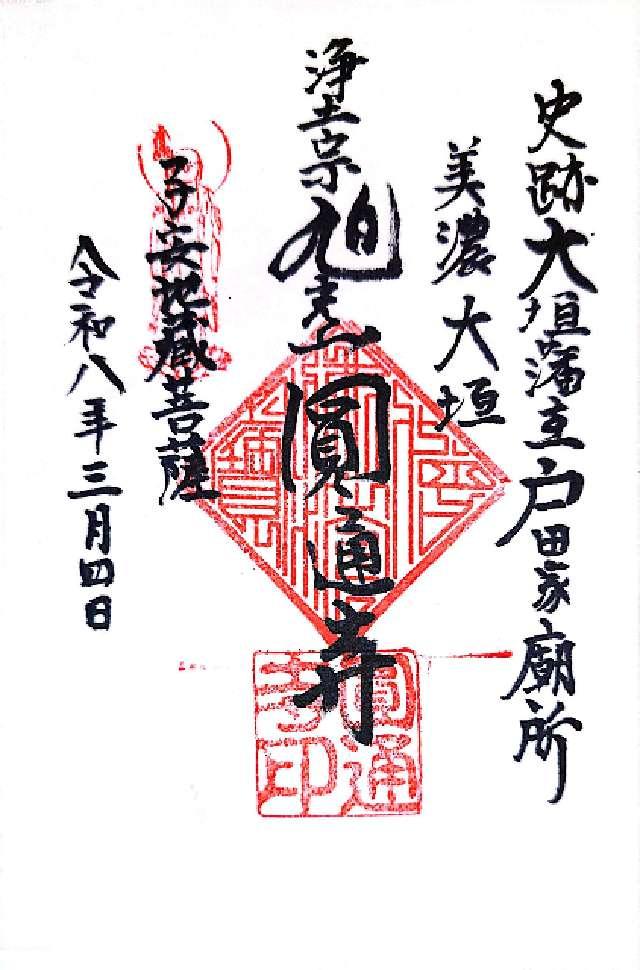 史跡大垣藩主戸田家廟所
美濃大垣
浄土宗旭光山圓通寺
子安地蔵菩薩
令和八年三月四日
圓通
寺印